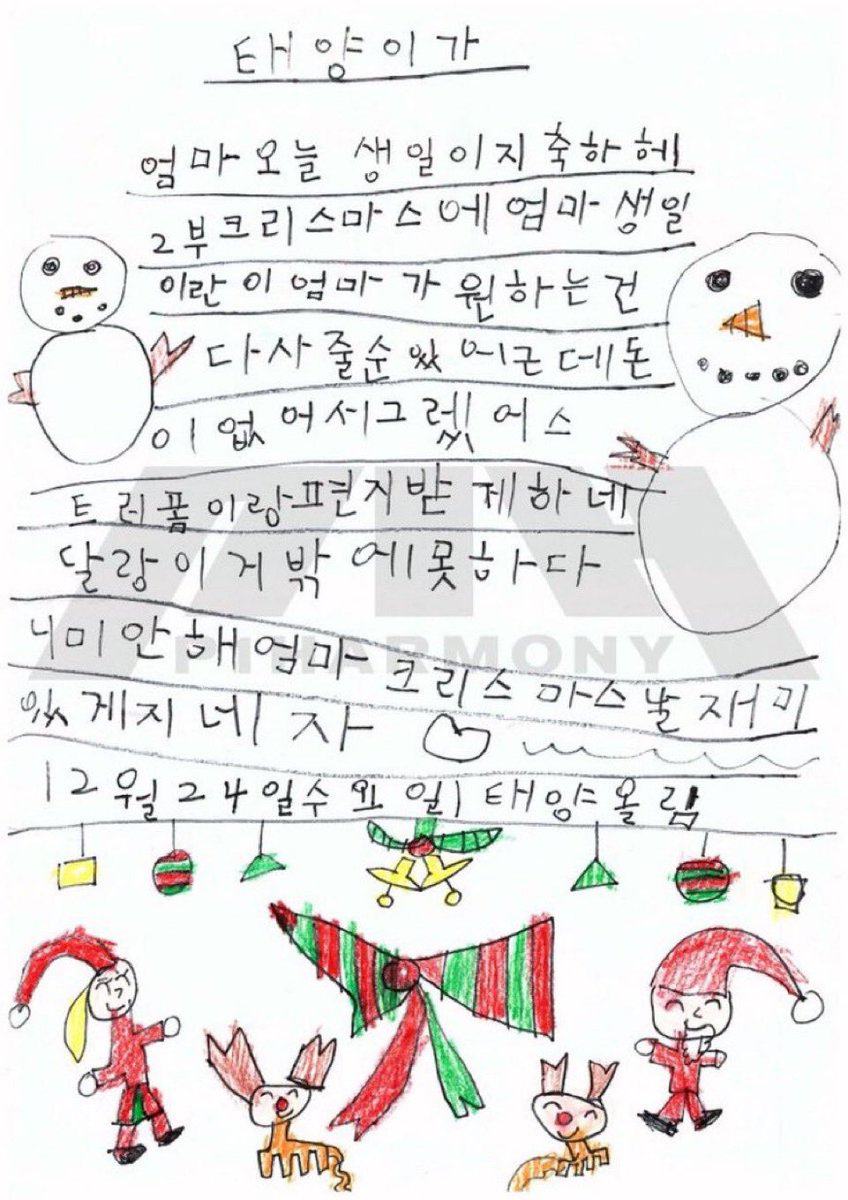 태양이가
엄마오늘 생일이지축하헤
2부크리스마스에엄마생일
이란이엄마가원하는건
다사줄순있어근데돈
이없어서그렜어스
트러폼이랑편지밭제하네
달랑이거밖에못하다
니미안해엄마크리스마스날재미
있게지네자
12월24일수요일태양올림
PIHARMONY